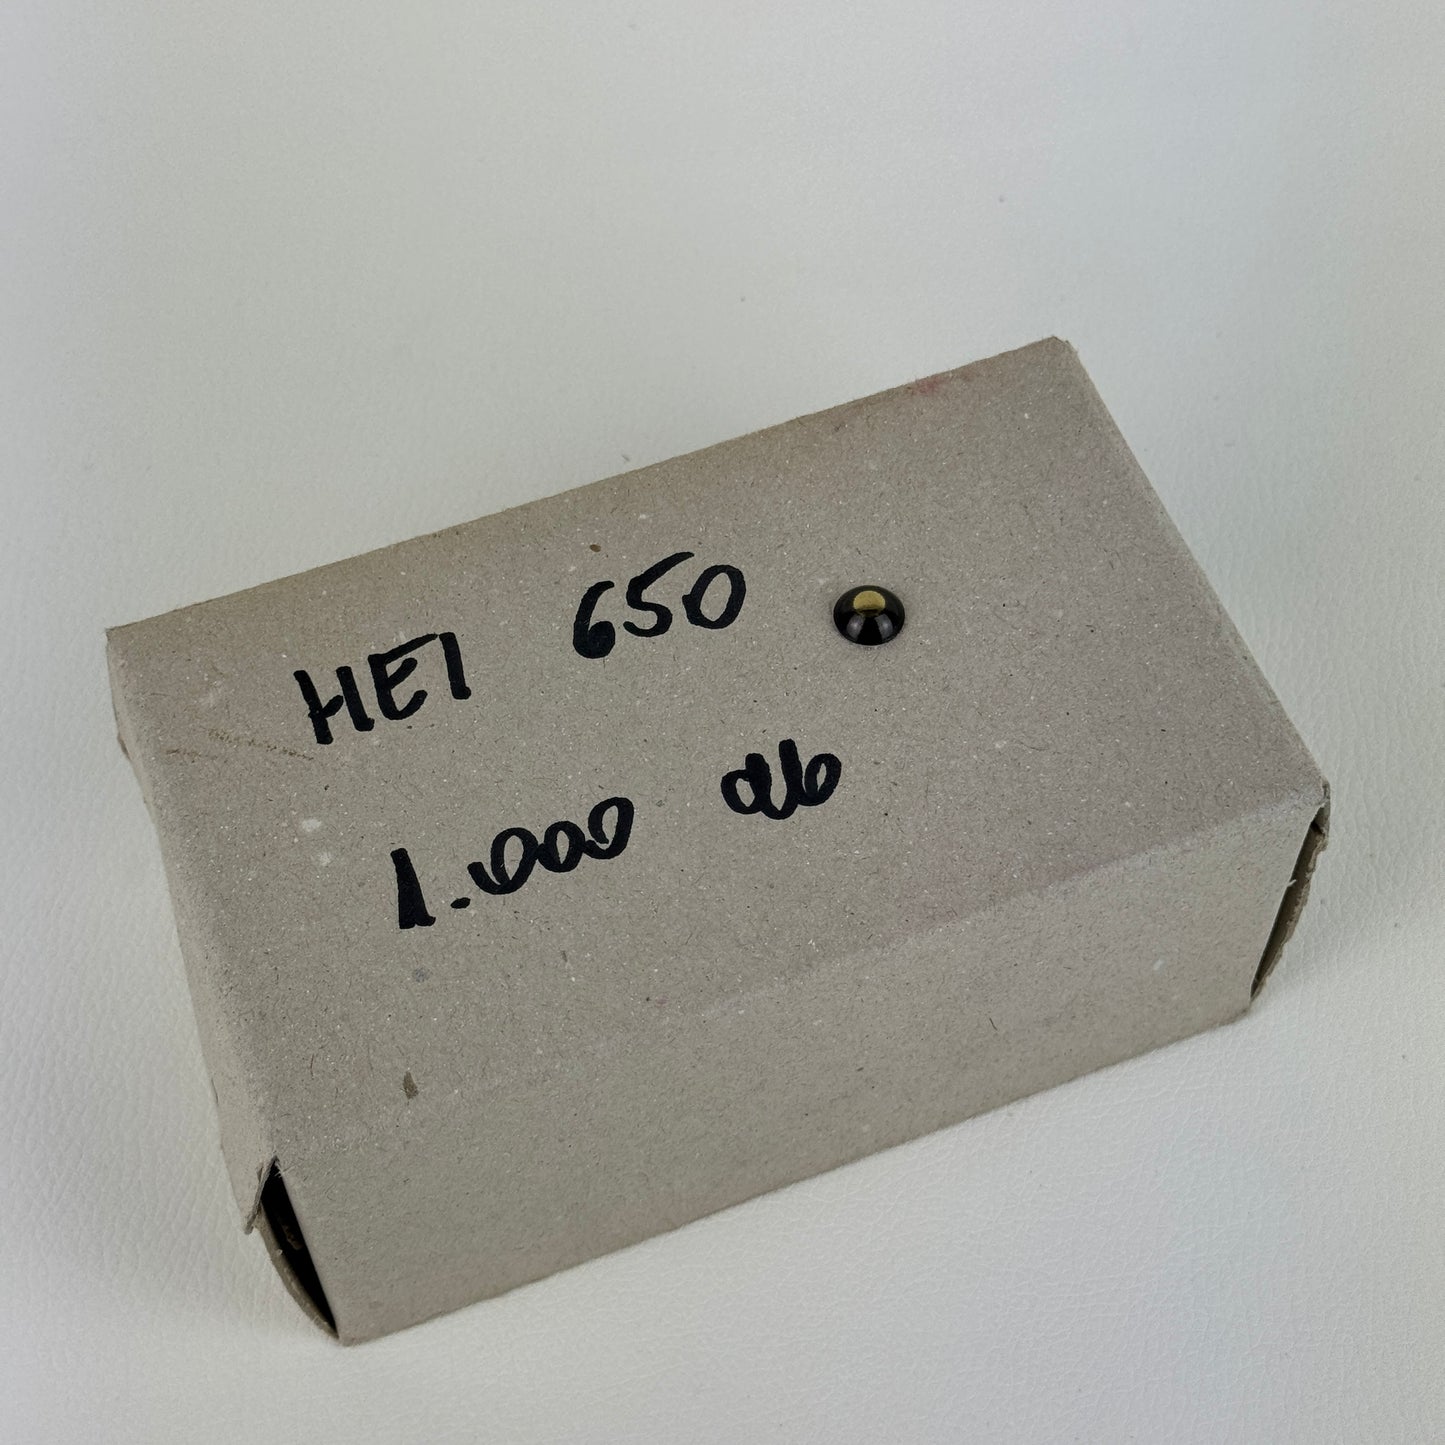 HEI 650
1.000 db